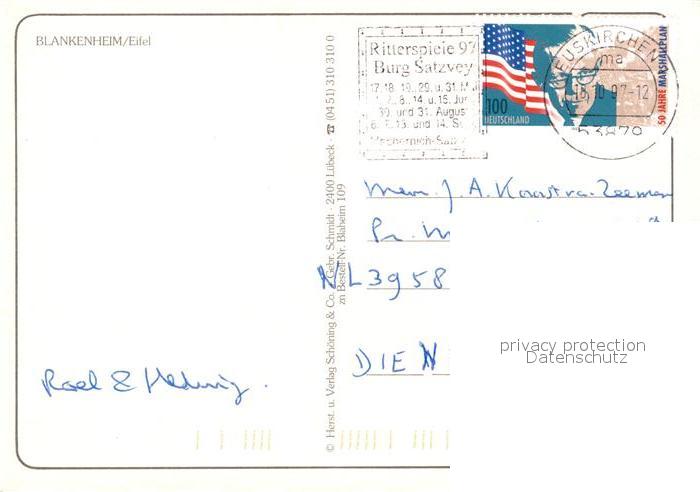 BLANKENHEIM/Eifel
Ritterspiele 97
Burg Satzvey
17. 18. 19., 29. u. 31. M
1., 7., 8., 14. u. 15. Jun
30. und 31. Augus
6. 7. 13. und 14. S
Mechernich-Satz
100
DEUTSCHLAND
50 JAHRE MARSHALLPLAN
EUSKIRCHEN
ma
15.10.97-12
53879
© Herst. u. Verlag Schöning & Co. + Gebr. Schmidt · 2400 Lübeck · ☎ (04 51) 310 310 0
zn Bestell-Nr. Blaheim 109
Mevr. J. A. Koostra-Zeeman
Pr. M
NL 3958
DIEN
Roel & Hedwig.
privacy protection
Datenschutz